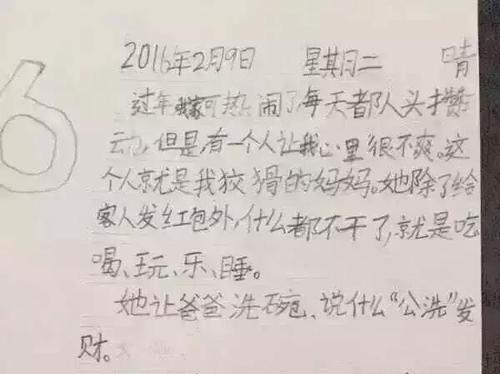 2016年2月9日 星期二 晴
过年我家可热闹了每天都人头攒
动,但是,有一个人让我心里很不爽。这
个人就是我狡猾的妈妈。她除了给
客人发红包外,什么都不干了,就是吃
喝、玩、乐、睡。
她让爸爸洗碗、说什么“公洗”发
财。